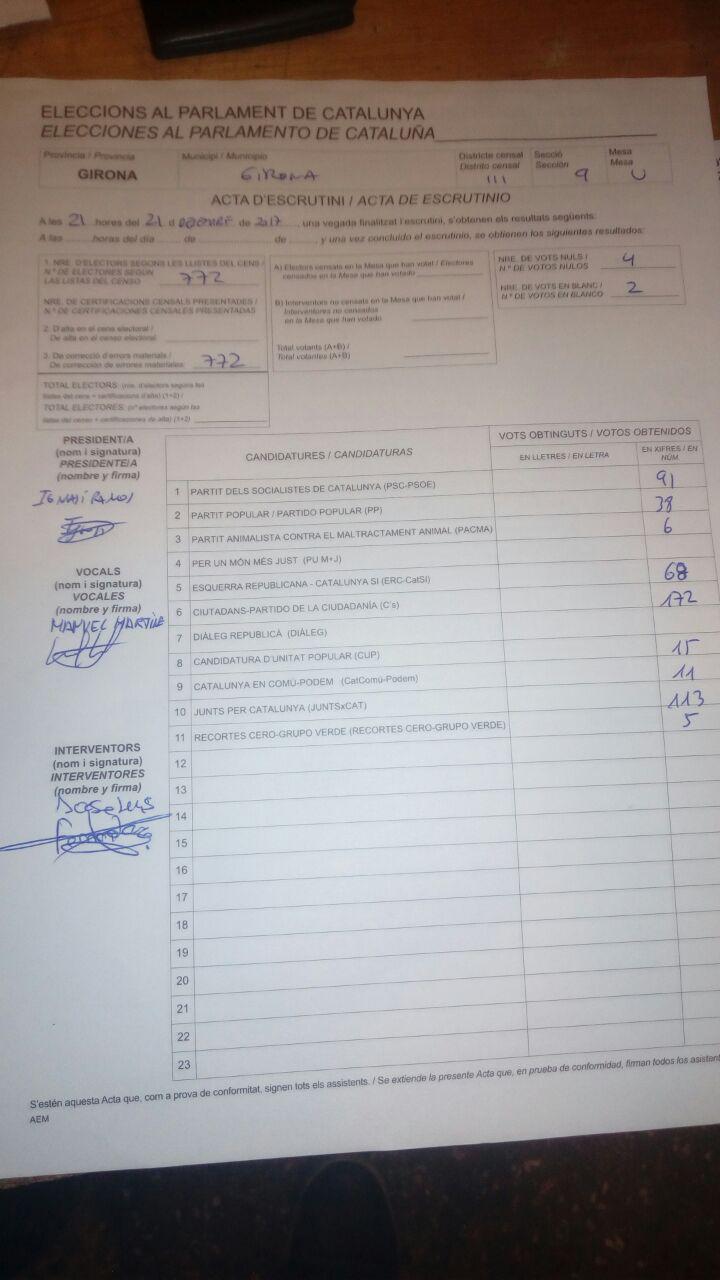 ELECCIONS AL PARLAMENT DE CATALUNYA
ELECCIONES AL PARLAMENTO DE CATALUÑA
Província / Provincia
GIRONA
Municipi / Municipio
GIRONA
Districte censal
Distrito censal
III
Secció
Sección
9
Mesa
Mesa
U
ACTA D'ESCRUTINI / ACTA DE ESCRUTINIO
A les 21 hores del 21 d de 2017, una vegada finalitzat l'escrutini, s'obtenen els resultats següents:
A las horas del día de de y una vez concluido el escrutinio, se obtienen los siguientes resultados:
1. NRE. D'ELECTORS SEGONS LES LLISTES DEL CENS /
N.º DE ELECTORES SEGÚN
LAS LISTAS DEL CENSO 772
NRE. DE CERTIFICACIONS CENSALS PRESENTADES /
N.º DE CERTIFICACIONES CENSALES PRESENTADAS
2. D'alta en el cens electoral /
De alta en el censo electoral
3. De correcció d'errors materials /
De corrección de errores materiales 772
TOTAL ELECTORS: (nre. d'electors segons les
llistes del cens + certificacions d'alta) (1+2) /
TOTAL ELECTORES: (nº electores según las
listas del censo + certificaciones de alta) (1+2)
A) Electors censats en la Mesa que han votat / Electores
censados en la Mesa que han votado
B) Interventors no censats en la Mesa que han votat /
Interventores no censados
en la Mesa que han votado
Total votants (A+B) /
Total votantes (A+B)
NRE. DE VOTS NULS /
N.º DE VOTOS NULOS 4
NRE. DE VOTS EN BLANC /
N.º DE VOTOS EN BLANCO 2
PRESIDENT/A
(nom i signatura)
PRESIDENTE/A
(nombre y firma)
VOCALS
(nom i signatura)
VOCALES
(nombre y firma)
MANUEL
INTERVENTORS
(nom i signatura)
INTERVENTORES
(nombre y firma)
CANDIDATURES / CANDIDATURAS
VOTS OBTINGUTS / VOTOS OBTENIDOS
EN LLETRES / EN LETRA
EN XIFRES / EN NÚM.
1 PARTIT DELS SOCIALISTES DE CATALUNYA (PSC-PSOE) 91
2 PARTIT POPULAR / PARTIDO POPULAR (PP) 38
3 PARTIT ANIMALISTA CONTRA EL MALTRACTAMENT ANIMAL (PACMA) 6
4 PER UN MÓN MÉS JUST (PU M+J)
5 ESQUERRA REPUBLICANA - CATALUNYA SI (ERC-CatSI) 68
6 CIUTADANS-PARTIDO DE LA CIUDADANÍA (C's) 172
7 DIÀLEG REPUBLICÀ (DIÀLEG)
8 CANDIDATURA D'UNITAT POPULAR (CUP) 15
9 CATALUNYA EN COMÚ-PODEM (CatComú-Podem) 11
10 JUNTS PER CATALUNYA (JUNTSxCAT) 113
11 RECORTES CERO-GRUPO VERDE (RECORTES CERO-GRUPO VERDE) 5
12
13
14
15
16
17
18
19
20
21
22
23
S'estén aquesta Acta que, com a prova de conformitat, signen tots els assistents. / Se extiende la presente Acta que, en prueba de conformidad, firman todos los asistent
AEM